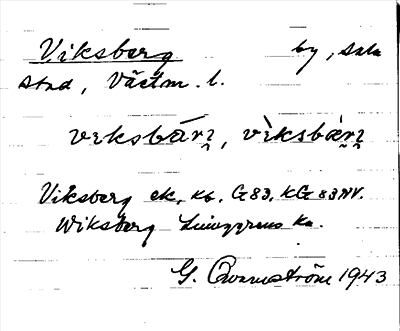 Viksberg by, Sala
stad, Västm. l.
viksbárı̣, vìksbàrı̣
Viksberg ek, Kb. G83, KG 83NV.
Wiksberg Ljunggrens Ka.
G. Qvarnström 1943